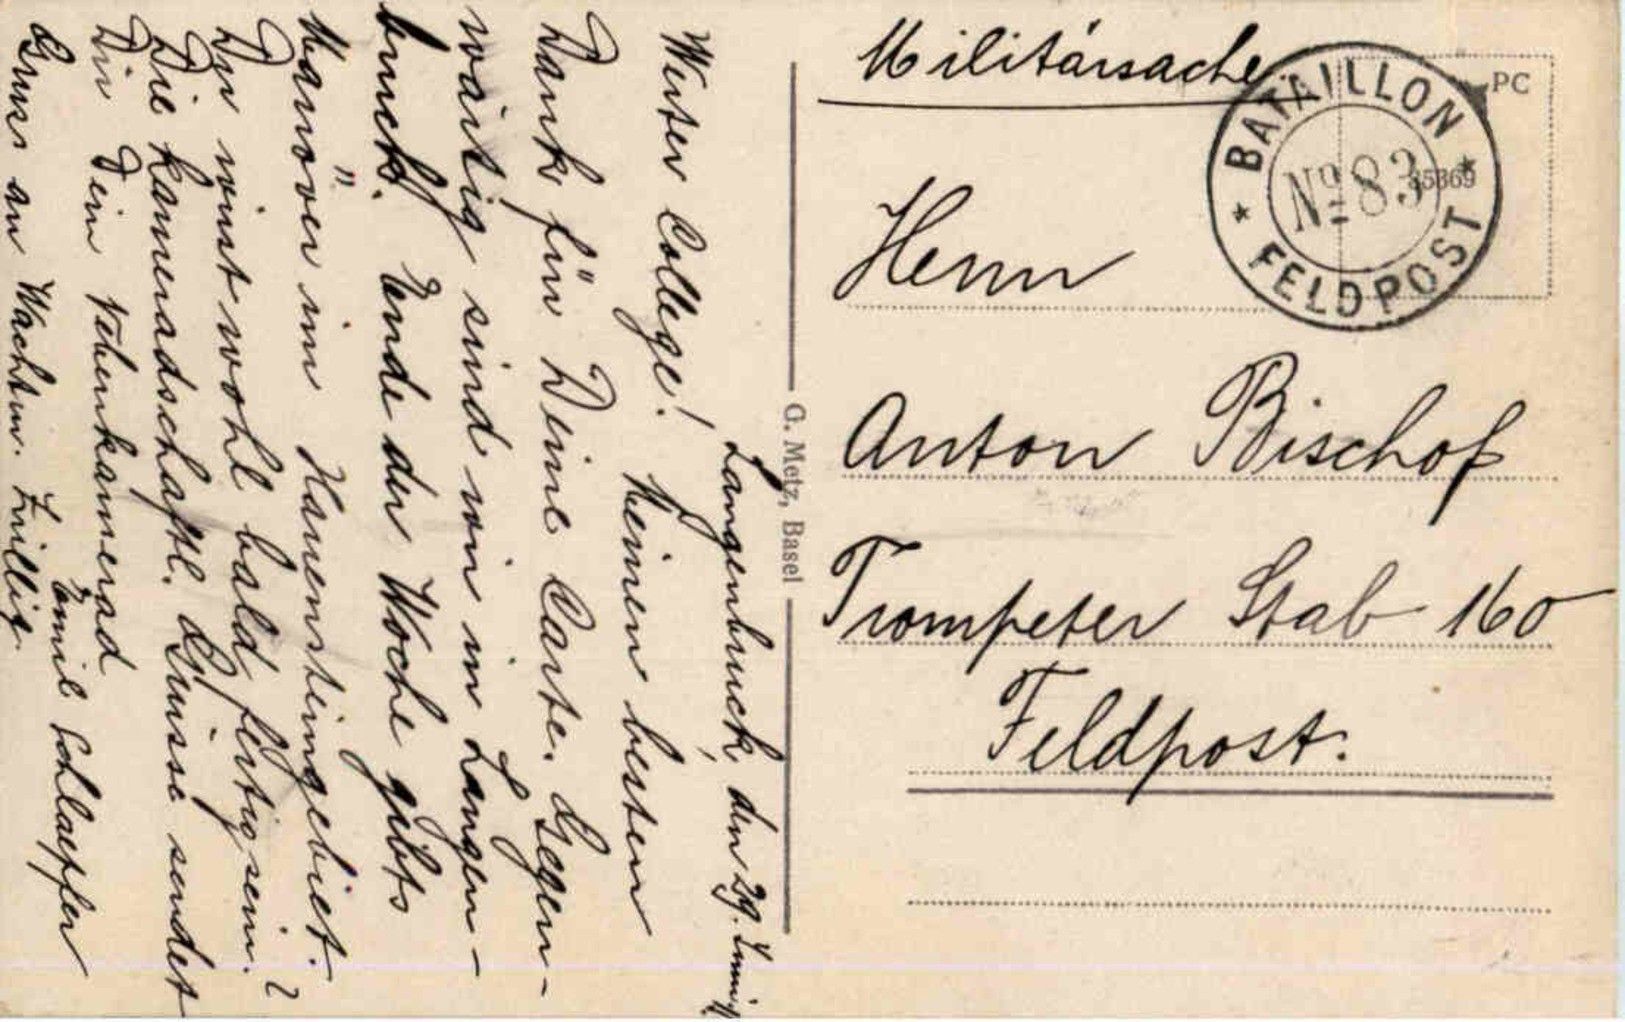 Militärsache
BATAILLON
No 83
FELDPOST
PC
85869
Herrn
Anton Bischof
Trompeter Stab 160
Feldpost.
G. Metz, Basel
Langenbruck, den 29. Juni
Werter College! Meinen besten
Dank für Deine Carte. Gegen-
wärtig sind wir in Langen-
bruck. Ende der Woche gibts
Manöver im Hauensteingebiet.
Du wirst wohl bald fertig sein?
Die kameradschaftl. Grüsse sendet
Dir Dein Nebenkamerad
Emil Schlaepfer
Gruss an Wachtm. Zwillig.